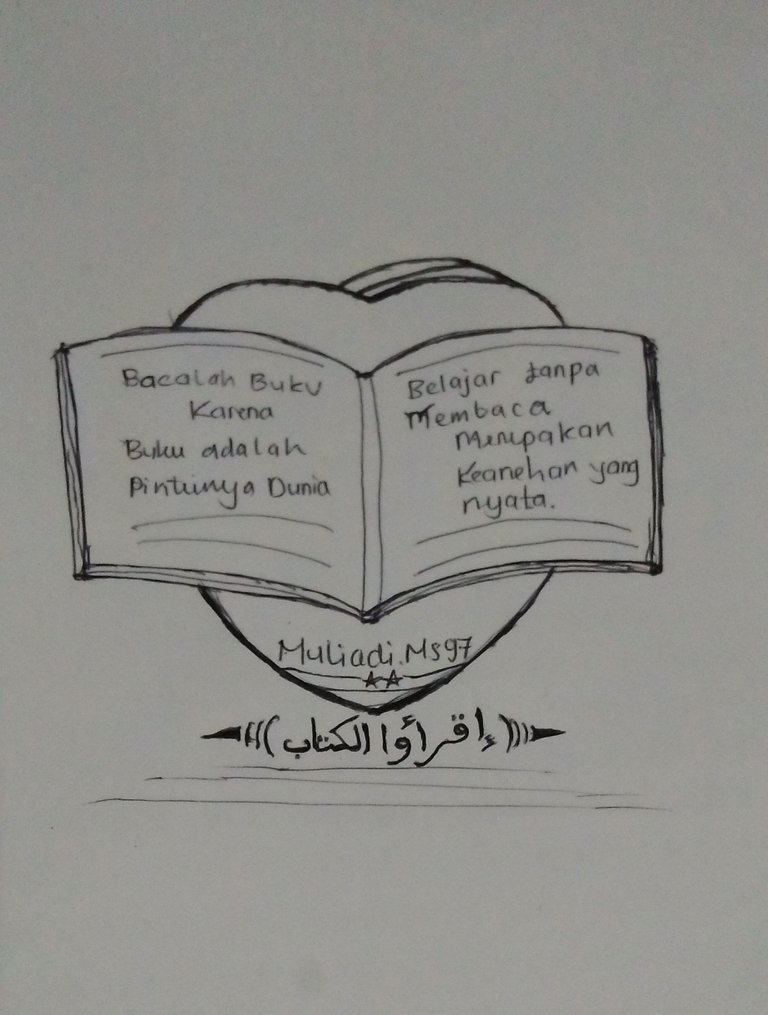 Bacalah Buku
Karena
Buku adalah
Pintunya Dunia
Belajar tanpa
Membaca
Merupakan
Keanehan yang
nyata.
Muliadi.Ms97
إقرأوا الكتاب